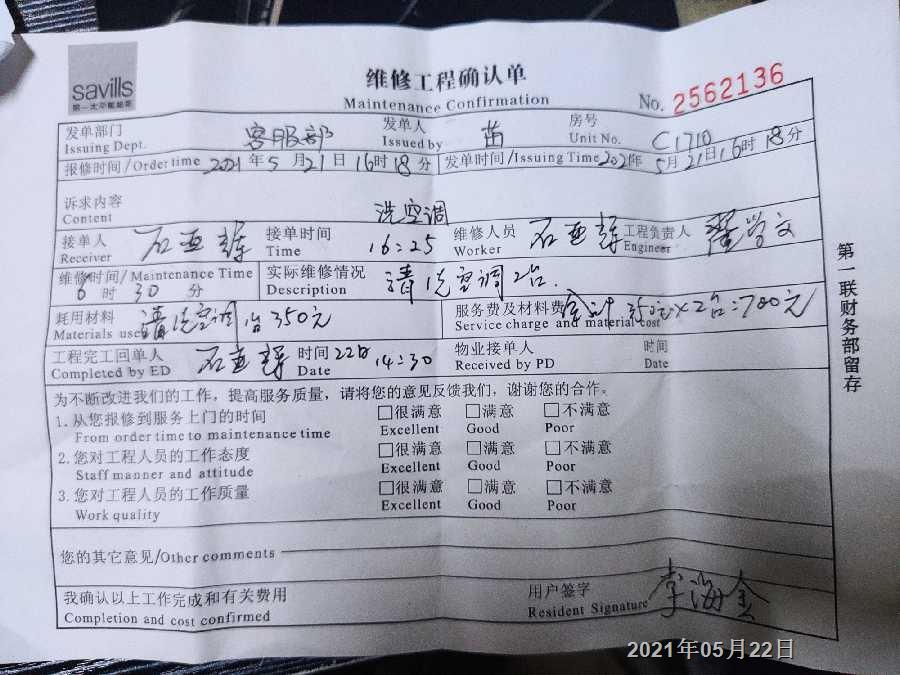 savills
第一太平戴维斯
维修工程确认单
Maintenance Confirmation
No. 2562136
发单部门 客服部 发单人 苗 房号 C1710
Issuing Dept. Issued by Unit No.
报修时间/Order time 2021年5月21日16时18分 发单时间/Issuing Time 2021年5月21日16时18分
诉求内容 洗空调
Content
接单人 石亚辉 接单时间 16:25 维修人员 石亚辉 工程负责人
Receiver Time Worker Engineer
维修时间/Maintenance Time 实际维修情况 清洗空调2台.
6时30分 Description
耗用材料 清洗空调1台350元 服务费及材料费 合计350元×2台=700元
Materials used Service charge and material cost
工程完工回单人 石亚辉 时间 22日 14:30 物业接单人 时间
Completed by ED Date Received by PD Date
为不断改进我们的工作，提高服务质量，请将您的意见反馈我们，谢谢您的合作。
1.从您报修到服务上门的时间 □很满意 □满意 □不满意
From order time to maintenance time Excellent Good Poor
2.您对工程人员的工作态度 □很满意 □满意 □不满意
Staff manner and attitude Excellent Good Poor
3.您对工程人员的工作质量 □很满意 □满意 □不满意
Work quality Excellent Good Poor
您的其它意见/Other comments
我确认以上工作完成和有关费用 用户签字 李海全
Completion and cost confirmed Resident Signature
第一联财务部留存
2021年05月22日